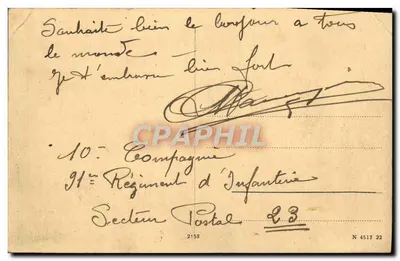 Souhaite bien le bonjour a tous
le monde
je t'embrasse bien fort
10e Compagnie
CPAPHIL
91e Régiment d'Infanterie
Secteur Postal 23
2150
N 4517 22